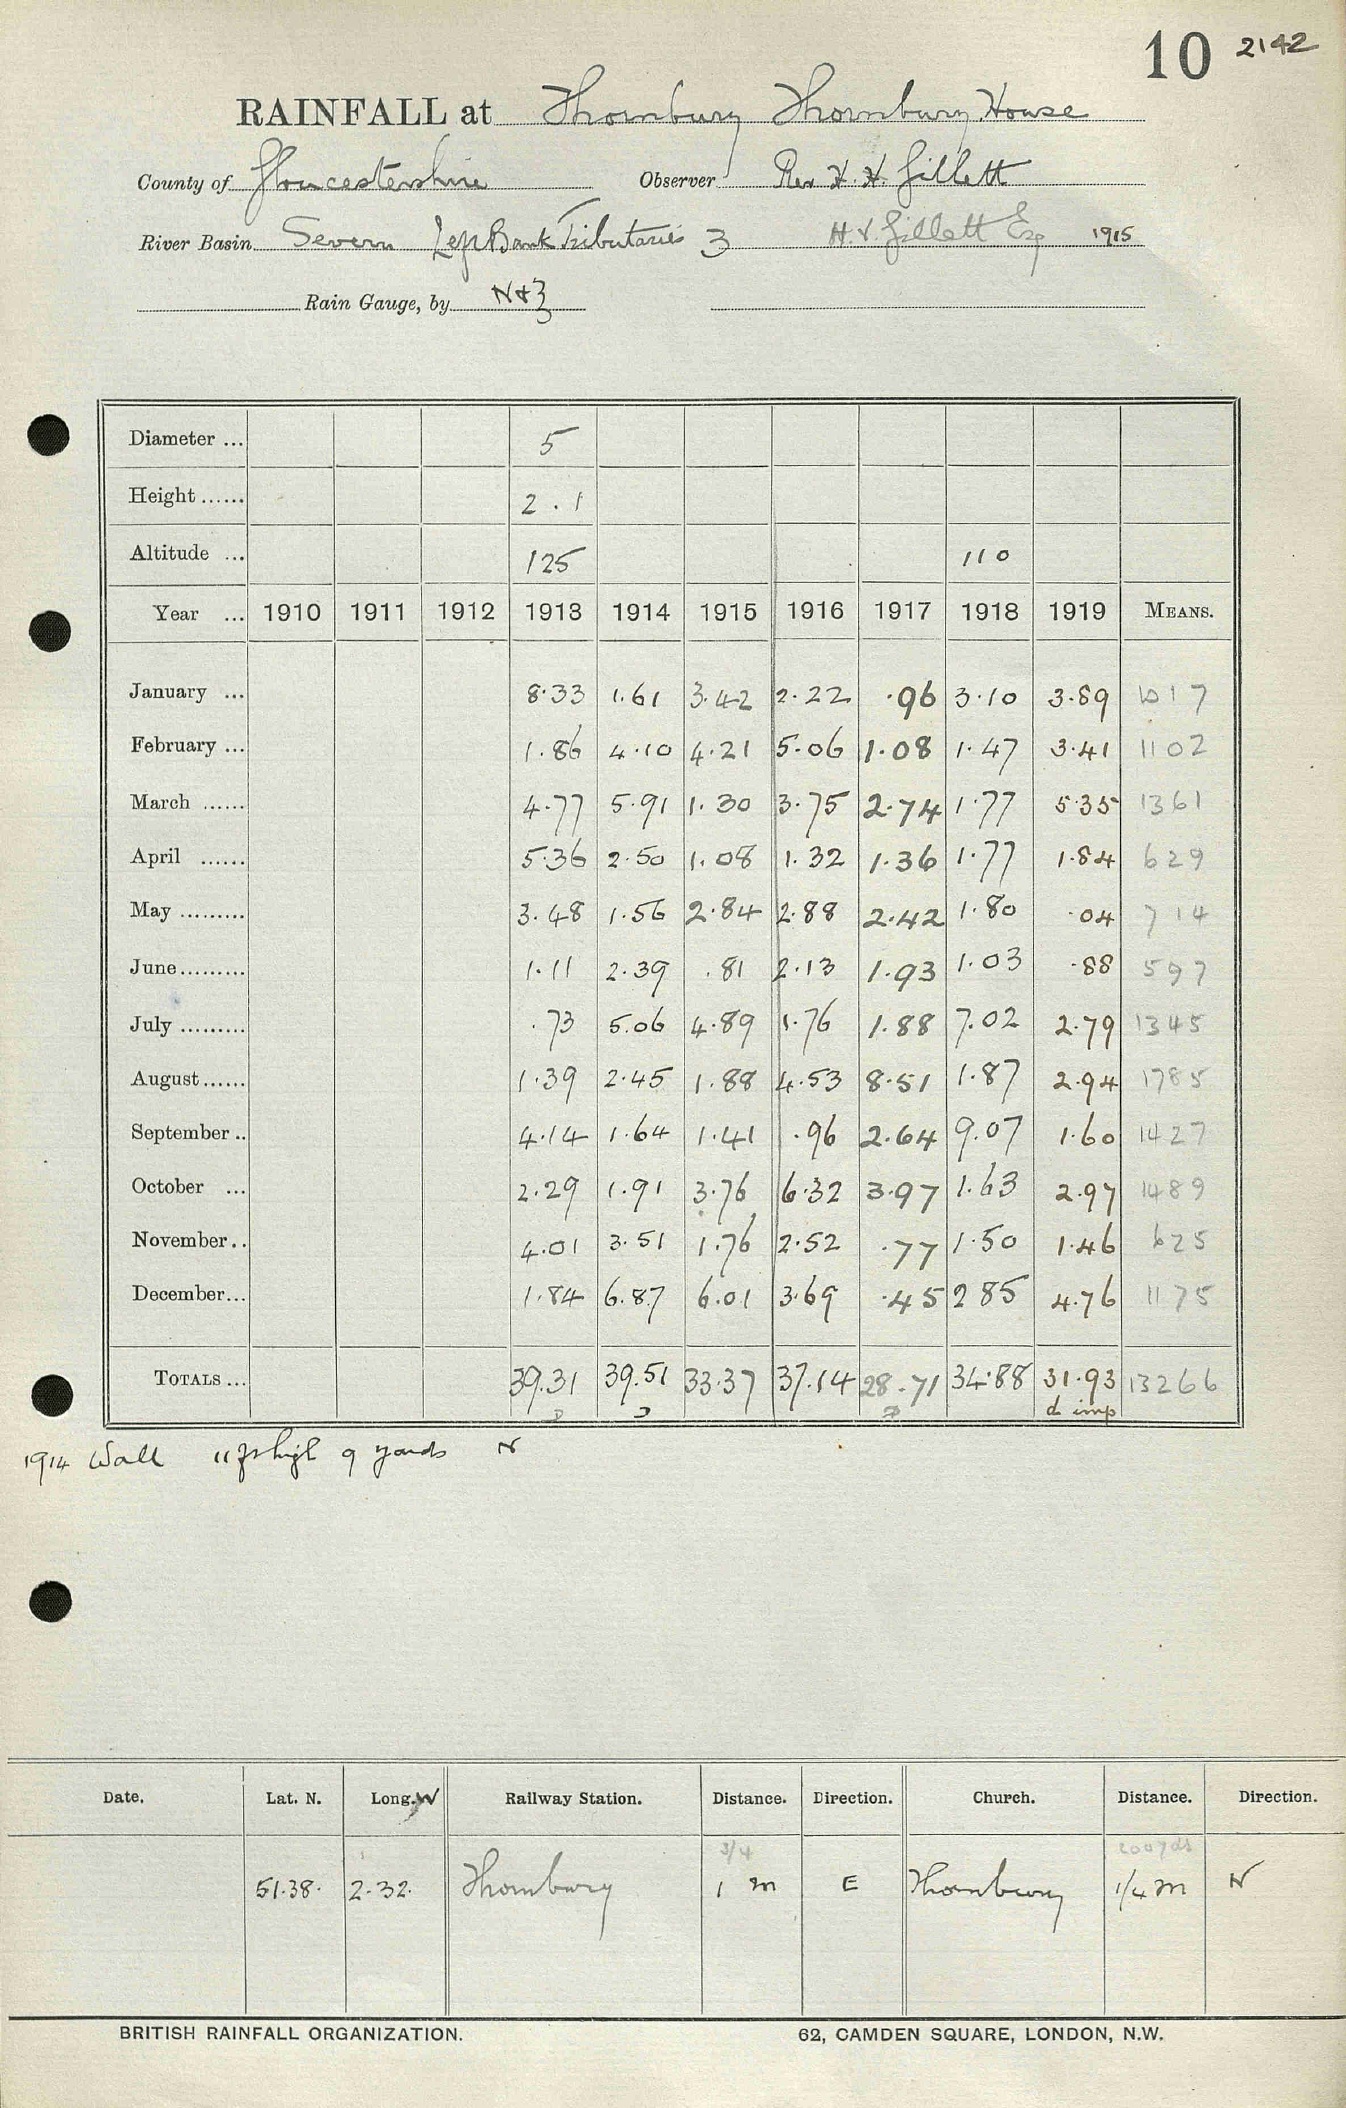 10 2142
RAINFALL at Thornbury Thornbury House
County of Gloucestershire Observer Rev H. H. Gillett
River Basin Severn Left Bank Tributaries 3 H. V. Gillett Esq 1915
Rain Gauge, by N & Z
Diameter ... 5
Height ...... 2.1
Altitude ... 125 110
Year ... 1910 1911 1912 1913 1914 1915 1916 1917 1918 1919 MEANS.
January ... 8.33 1.61 3.42 2.22 .96 3.10 3.89 1017
February ... 1.86 4.10 4.21 5.06 1.08 1.47 3.41 1102
March ...... 4.77 5.91 1.30 3.75 2.74 1.77 5.35 1361
April ...... 5.36 2.50 1.08 1.32 1.36 1.77 1.84 629
May ......... 3.48 1.56 2.84 2.88 2.42 1.80 .04 714
June......... 1.11 2.39 .81 2.13 1.93 1.03 .88 597
July ......... .73 5.06 4.89 1.76 1.88 7.02 2.79 1345
August...... 1.39 2.45 1.88 4.53 8.51 1.87 2.94 1785
September .. 4.14 1.64 1.41 .96 2.64 9.07 1.60 1427
October ... 2.29 1.91 3.76 6.32 3.97 1.63 2.97 1489
November.. 4.01 3.51 1.76 2.52 .77 1.50 1.46 625
December... 1.84 6.87 6.01 3.69 .45 2 85 4.76 1175
TOTALS ... 39.31 39.51 33.37 37.14 28.71 34.88 31.93 13266
d imp
1914 Wall 11 ft high 9 yards N
Date. Lat. N. Long. W Railway Station. Distance. Direction. Church. Distance. Direction.
3/4 200 yds
51.38. 2.32. Thornbury 1 m E Thornbury 1/4 m N
BRITISH RAINFALL ORGANIZATION. 62, CAMDEN SQUARE, LONDON, N.W.